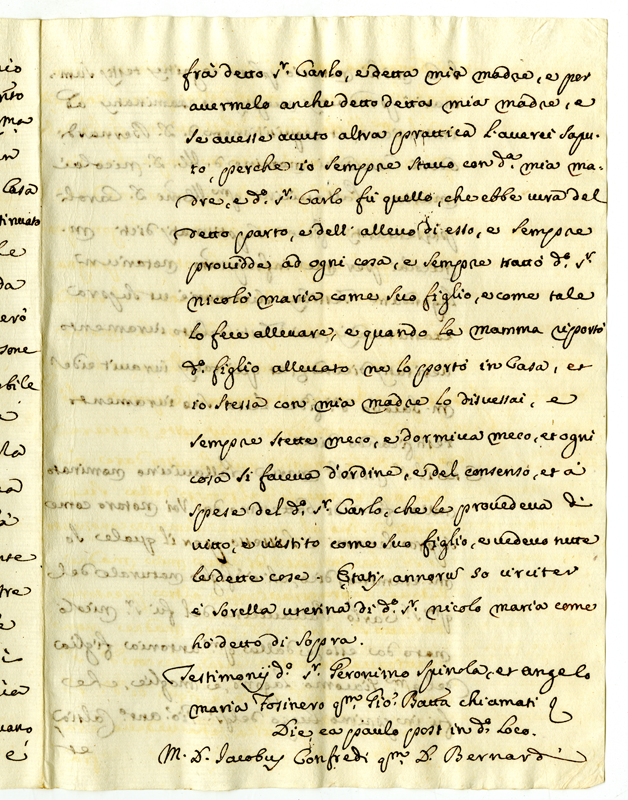 frà detto Sr. Carlo, e detta mia madre, e per
auermelo anche detto detta mia madre, e
se auesse auuto altra prattica l'auerei sapu-
to, perche io sempre stauo con d.a mia ma-
dre, e d.o Sr. Carlo fù quello, che ebbe cura del
detto parto, e dell' alleuo di esso, e sempre
prouidde ad ogni cosa, e sempre trattò d.o Sr.
nicolò maria come suo figlio, e come tale
lo fece alleuare, e quando la mamma riportò
d.o figlio alleuato ne lo portò in Casa, et
io stessa con mia madre lo disuessai, e
sempre stette meco, e dormiua meco, et ogni
cosa si faceua d'ordine, e del consenso, et à
spese del d.o Sr. Carlo, che le prouedeua di
uitto, e uestito come suo figlio, e uedeuo tutte
le dette cose. Etatis annorū 50 circiter
è sorella uterina di d.o Sr. nicolo maria come
hò detto di sopra.
Testimonij d.o Sr. Geronimo Spinola, et angelo
maria qm. Gio. Batta chiamati
Die ea paulo post in d.o Loco.
M. D. Jacobus Confredi qm. D. Bernardi
io
Casa
tinuato
le
da
sone
bile
la
tre